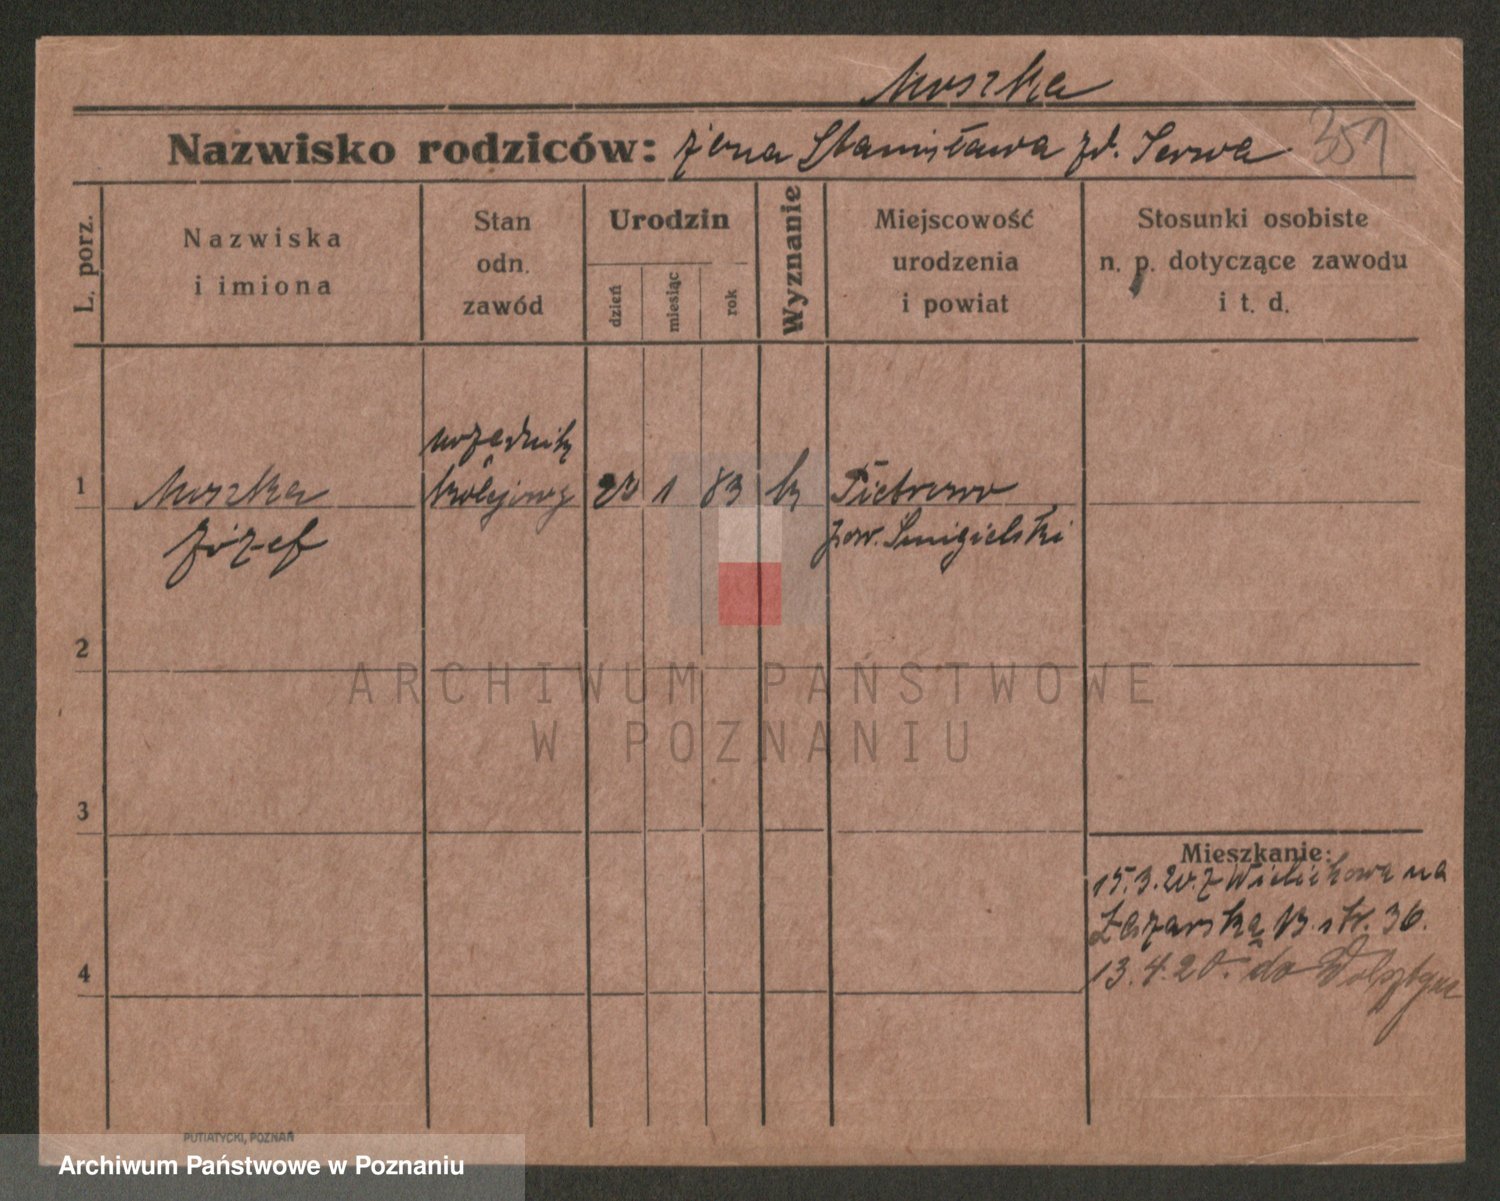 Muszka
Nazwisko rodziców: żona Stanisława zd. Serwa 351
L. porz.
Nazwiska
i imiona
Stan
odn.
zawód
Urodzin
dzień
miesiąc
rok
Wyznanie
Miejscowość
urodzenia
i powiat
Stosunki osobiste
n. p. dotyczące zawodu
i t. d.
1
Muszka
Józef
urzędnik
kolejowy
1 83
Pietrowo
pow. Śmigielski
2
3
4
Mieszkanie:
15.3.20. z Wielichowa na
Łazarską 13. str. 36.
13.4.20. do Wolsztyna
PUTIATYCKI, POZNAŃ
ARCHIWUM PAŃSTWOWE
W POZNANIU
Archiwum Państwowe w Poznaniu